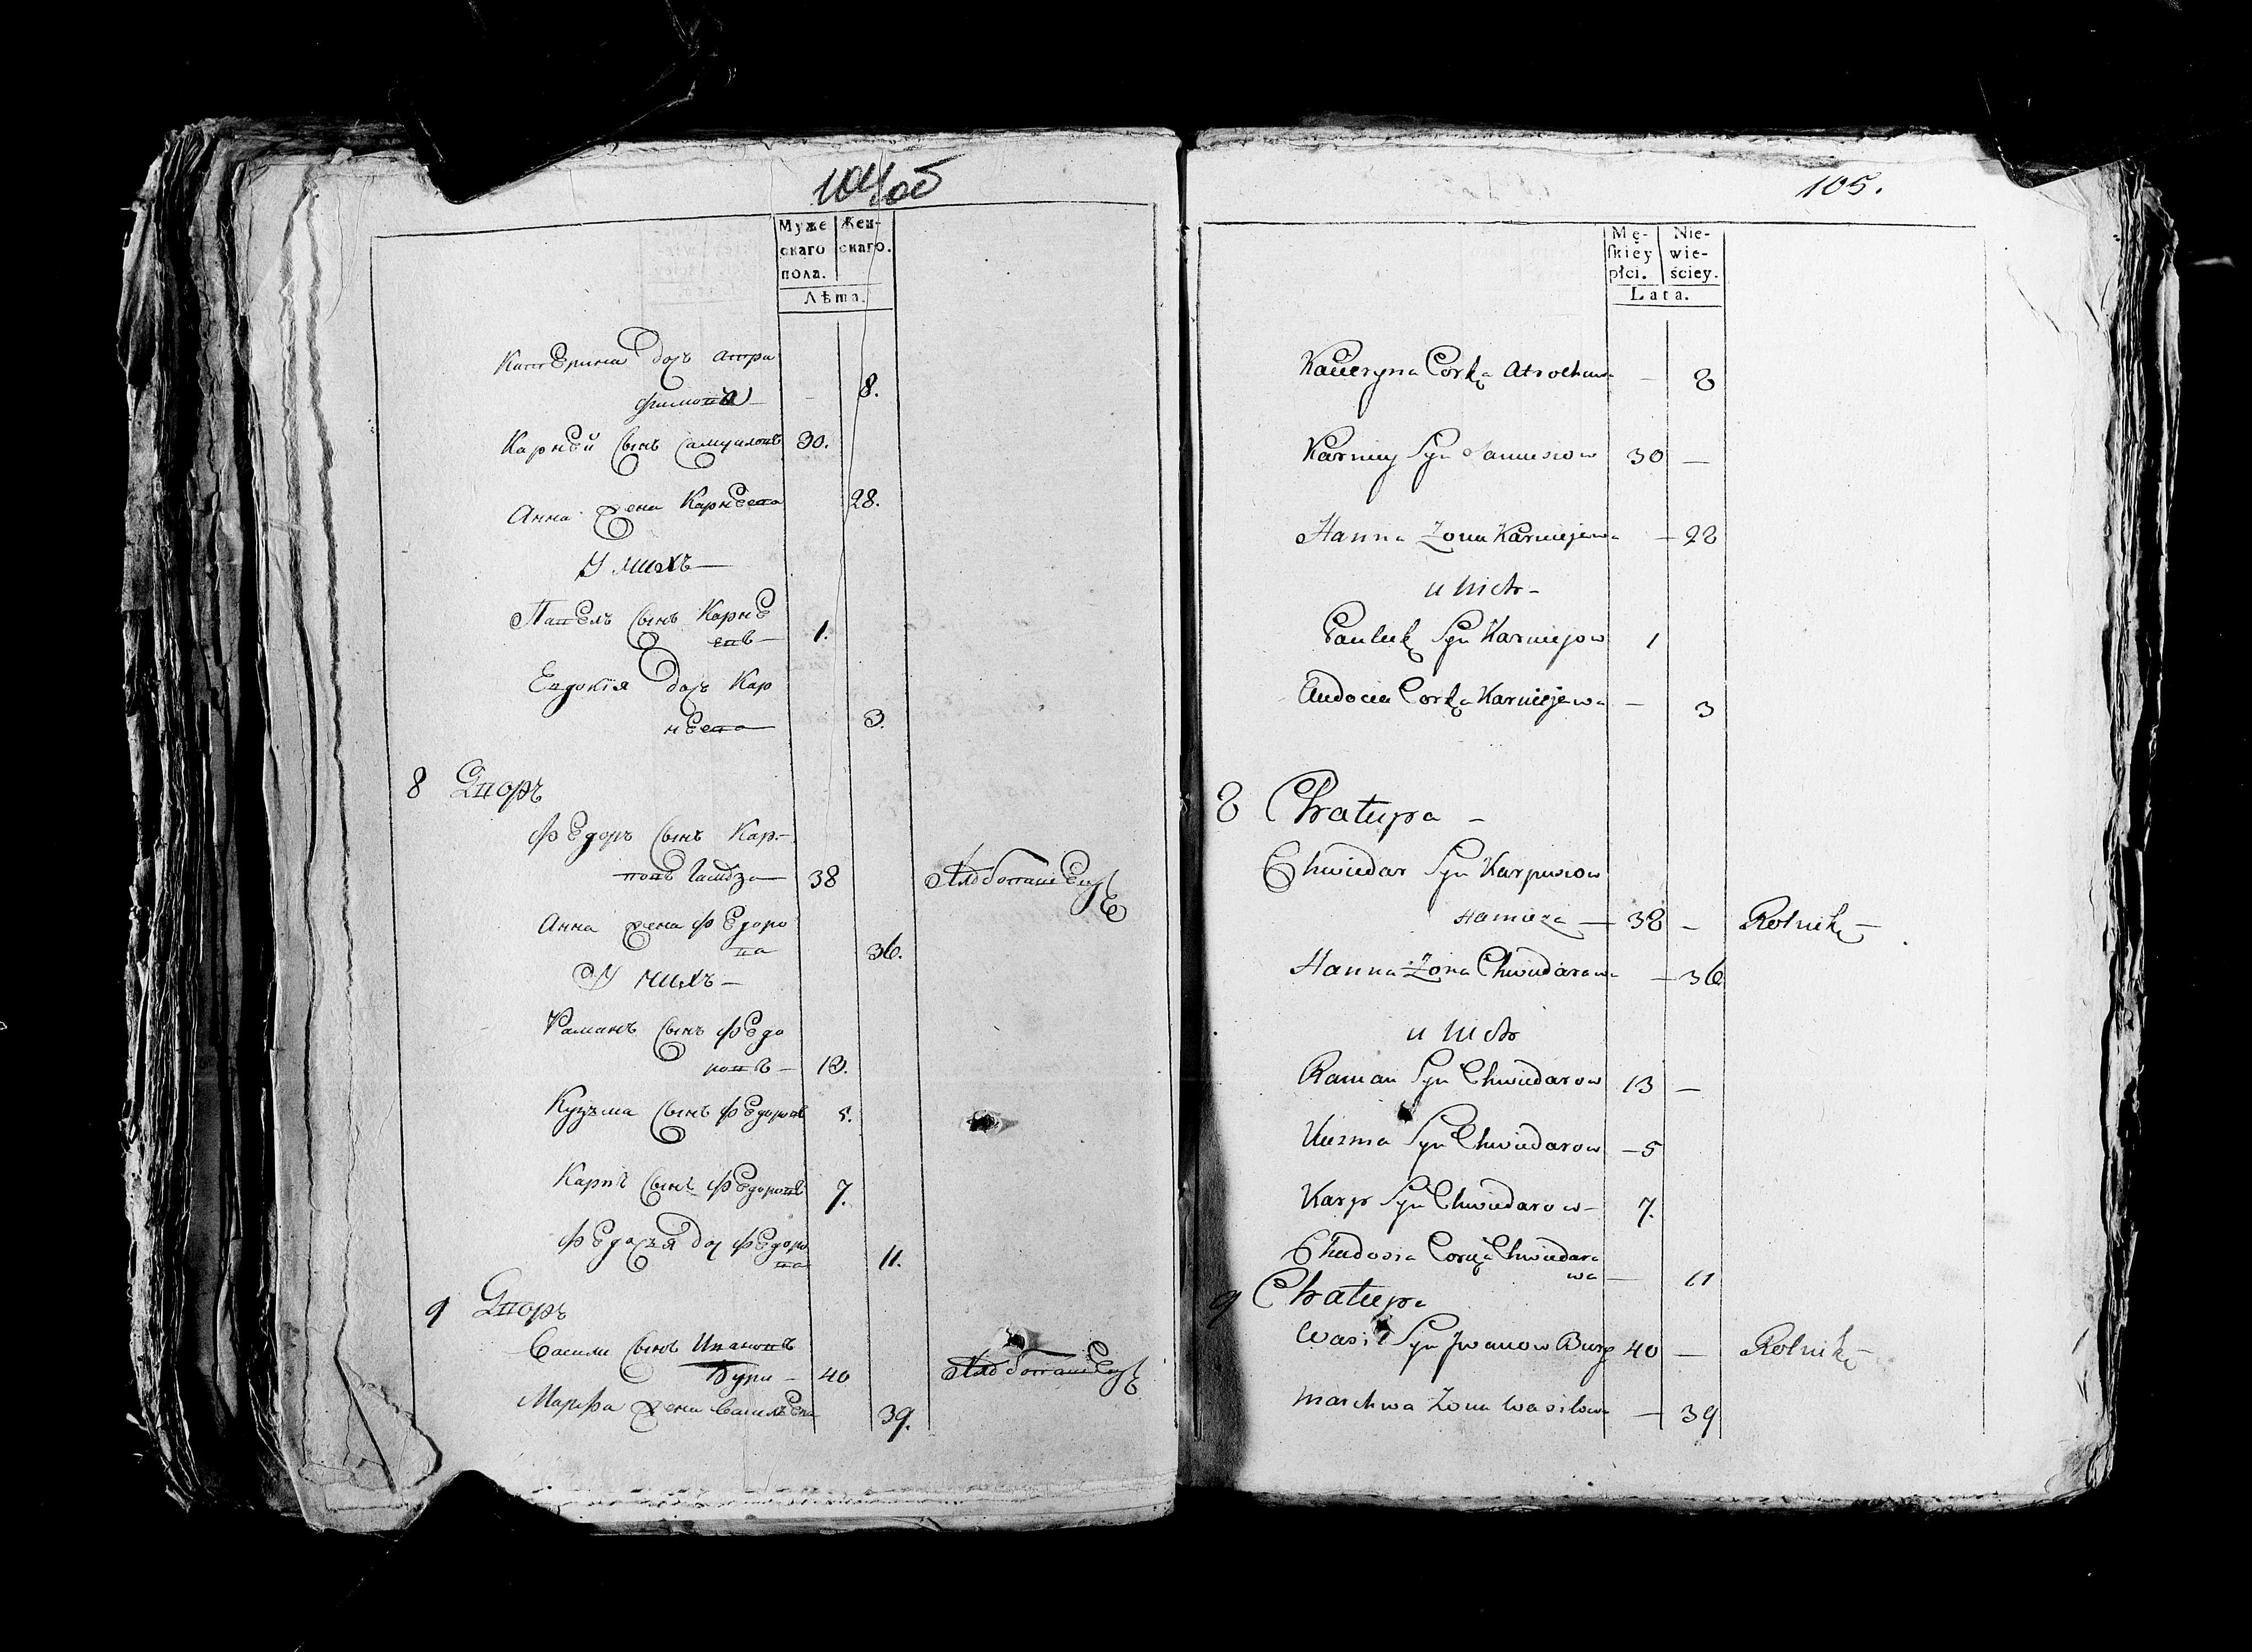 104об
Муже Жен-
скаго скаго.
пола.
Лѣта.
Катерина дочь Атро
фимова — 8.
Карней сынъ Самуиловъ 30.
Анна жена Карнеева 28.
У нихъ —
Павелъ сынъ Карне
евъ — 1.
Евдокія дочь Кар
неева 3.
8 Дворъ
Федоръ сынъ Кар-
повъ 38
Анна жена Федоро
ва 36.
У нихъ —
Раманъ сынъ Федо
ровъ — 13.
Кузьма сынъ Федоровъ 5.
Карпъ сынъ Федоровъ 7.
Федосья доч Федоро
ва 11.
9 Дворъ
Васили сынъ Ивановъ
Бури — 40
Марфа жена Васильева 39.
105.
Mę- Nie-
ſkiey wie-
płci. ściey.
Lata.
Kaceryna Corka Atrochowa — 8
Karniey Syn Samusiow 30 —
Hanna Zona Karniejewa — 28
u nich -
Pauluk Syn Karniejow 1
Audocia Corka Karniejewa — 3
8 Chatupa -
Chwiedar Syn Karpusiow
— 38 - Rolnik —
Hanna Zona Chwiedarowa — 36
u nich
Raman Syn Chwiedarow 13 —
Kuzma Syn Chwiedarow — 5
Karp Syn Chwiedarow - 7.
Chudosia Corka Chwiedaro
wa — 11
9 Chatupa
Wasil Syn Jwanow Bury 40 — Rolnik —
Marchwa Zona Wasilowa — 39